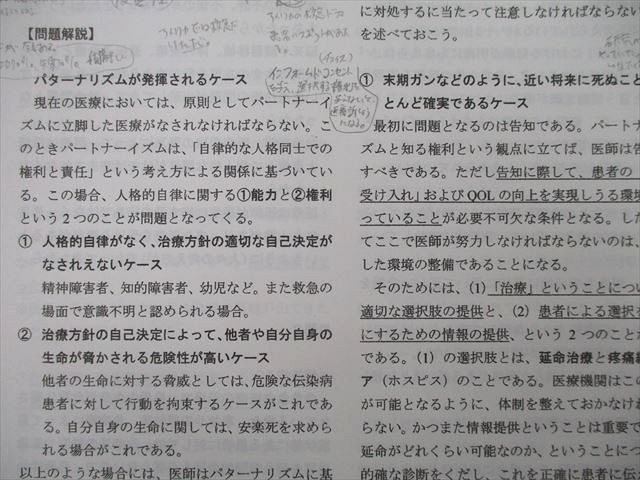 【問題解説】
パターナリズムが発揮されるケース
現在の医療においては、原則としてパートナーイ
ズムに立脚した医療がなされなければならない。こ
のときパートナーイズムは、「自律的な人格同士での
権利と責任」という考え方による関係に基づいてい
る。この場合、人格的自律に関する①能力と②権利
という2つのことが問題となってくる。
① 人格的自律がなく、治療方針の適切な自己決定が
なされえないケース
精神障害者、知的障害者、幼児など。また救急の
場面で意識不明と認められる場合。
② 治療方針の自己決定によって、他者や自分自身の
生命が脅かされる危険性が高いケース
他者の生命に対する脅威としては、危険な伝染病
患者に対して行動を拘束するケースがこれであ
る。自分自身の生命に関しては、安楽死を求めら
れる場合がこれである。
以上のような場合には、医師はパターナリズムに基
インフォームドコンセント
に対処するに当たって注意しなければならない
を述べておこう。
① 末期ガンなどのように、近い将来に死ぬこと
とんど確実であるケース
最初に問題となるのは告知である。パートナ
ズムと知る権利という観点に立てば、医師は告
すべきである。ただし告知に際して、患者の「
受け入れ」およびQOLの向上を実現しうる環境
っていることが必要不可欠な条件となる。した
てここで医師が努力しなければならないのは、
した環境の整備であることになる。
そのためには、(1)「治療」ということについ
適切な選択肢の提供と、(2) 患者による選択を
にするための情報の提供、という2つのことが
である。(1) の選択肢とは、延命治療と疼痛緩
ア（ホスピス）のことである。医療機関はこ
が可能となるように、体制を整えておかなけれ
らない。かつまた情報提供ということは重要で
延命がどれくらい可能なのか、ということにつ
的確な診断をくだし、これを正確に患者に伝え